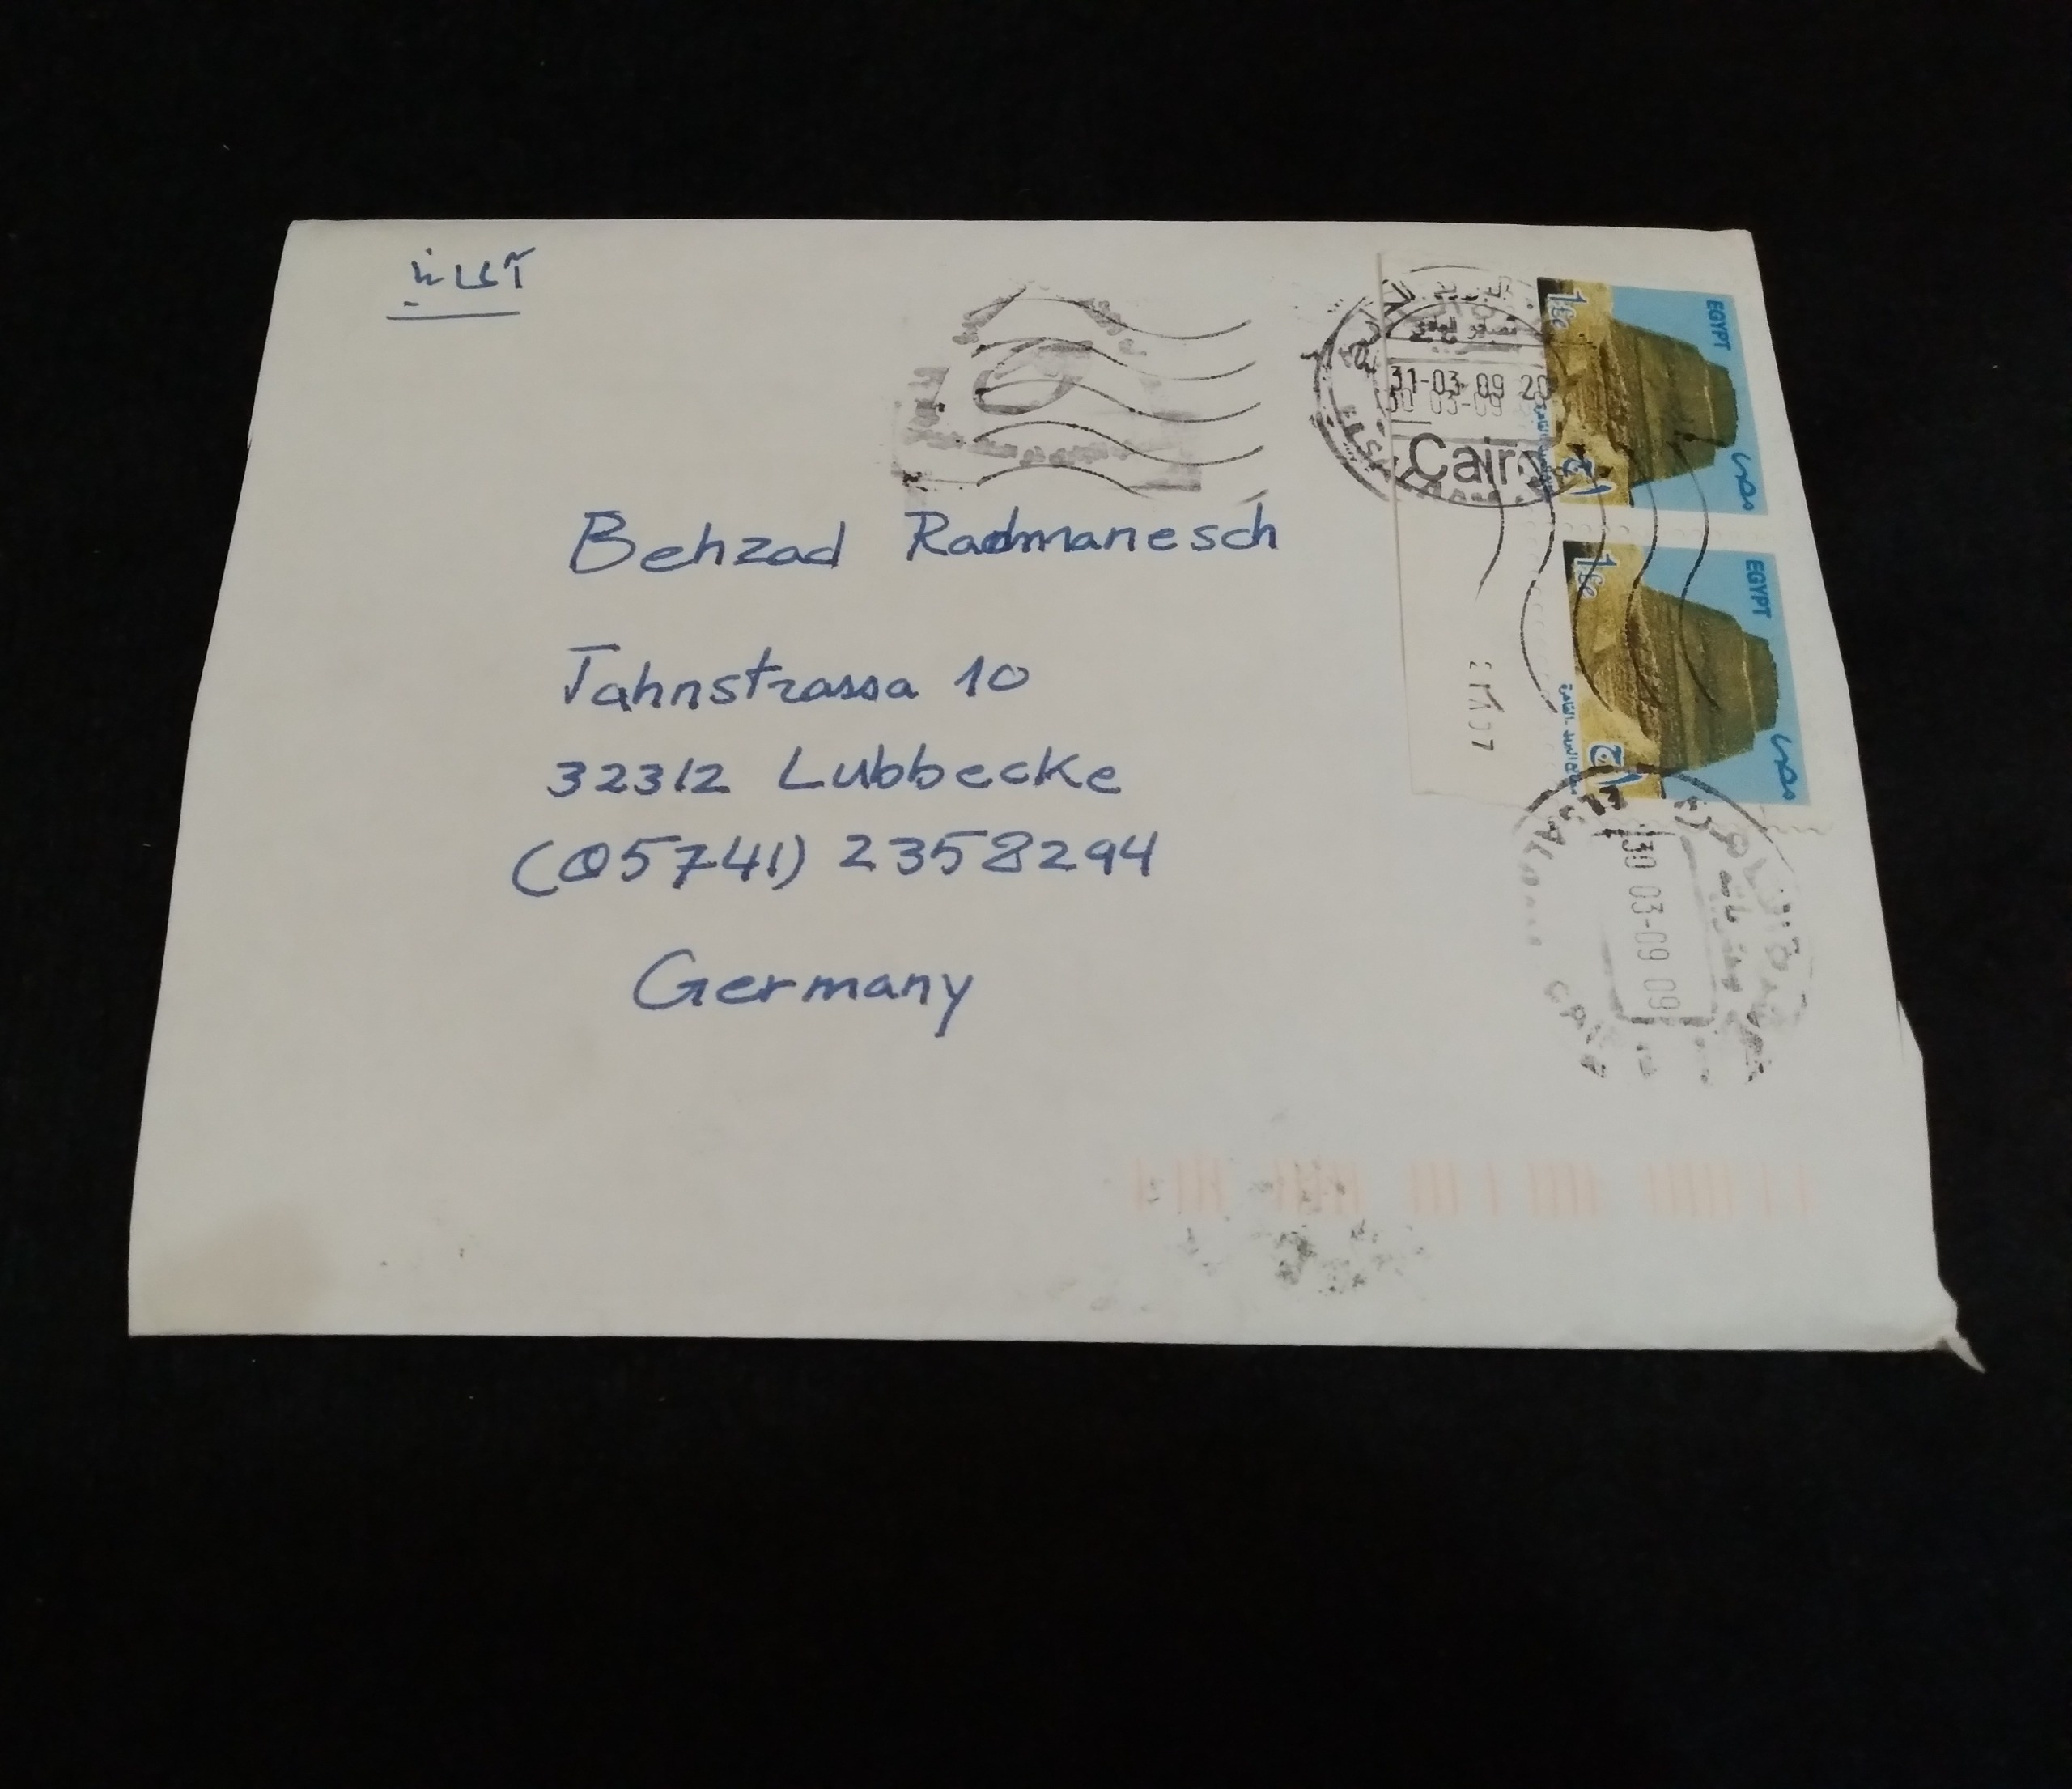 ألمانيا
Behzad Radmanesch
Jahnstrassa 10
32312 Lubbecke
(05741) 2358294
Germany
31-03-09 20
30 03-09
Cairo
EGYPT
مصر
EGYPT
مصر
30 03-09 09